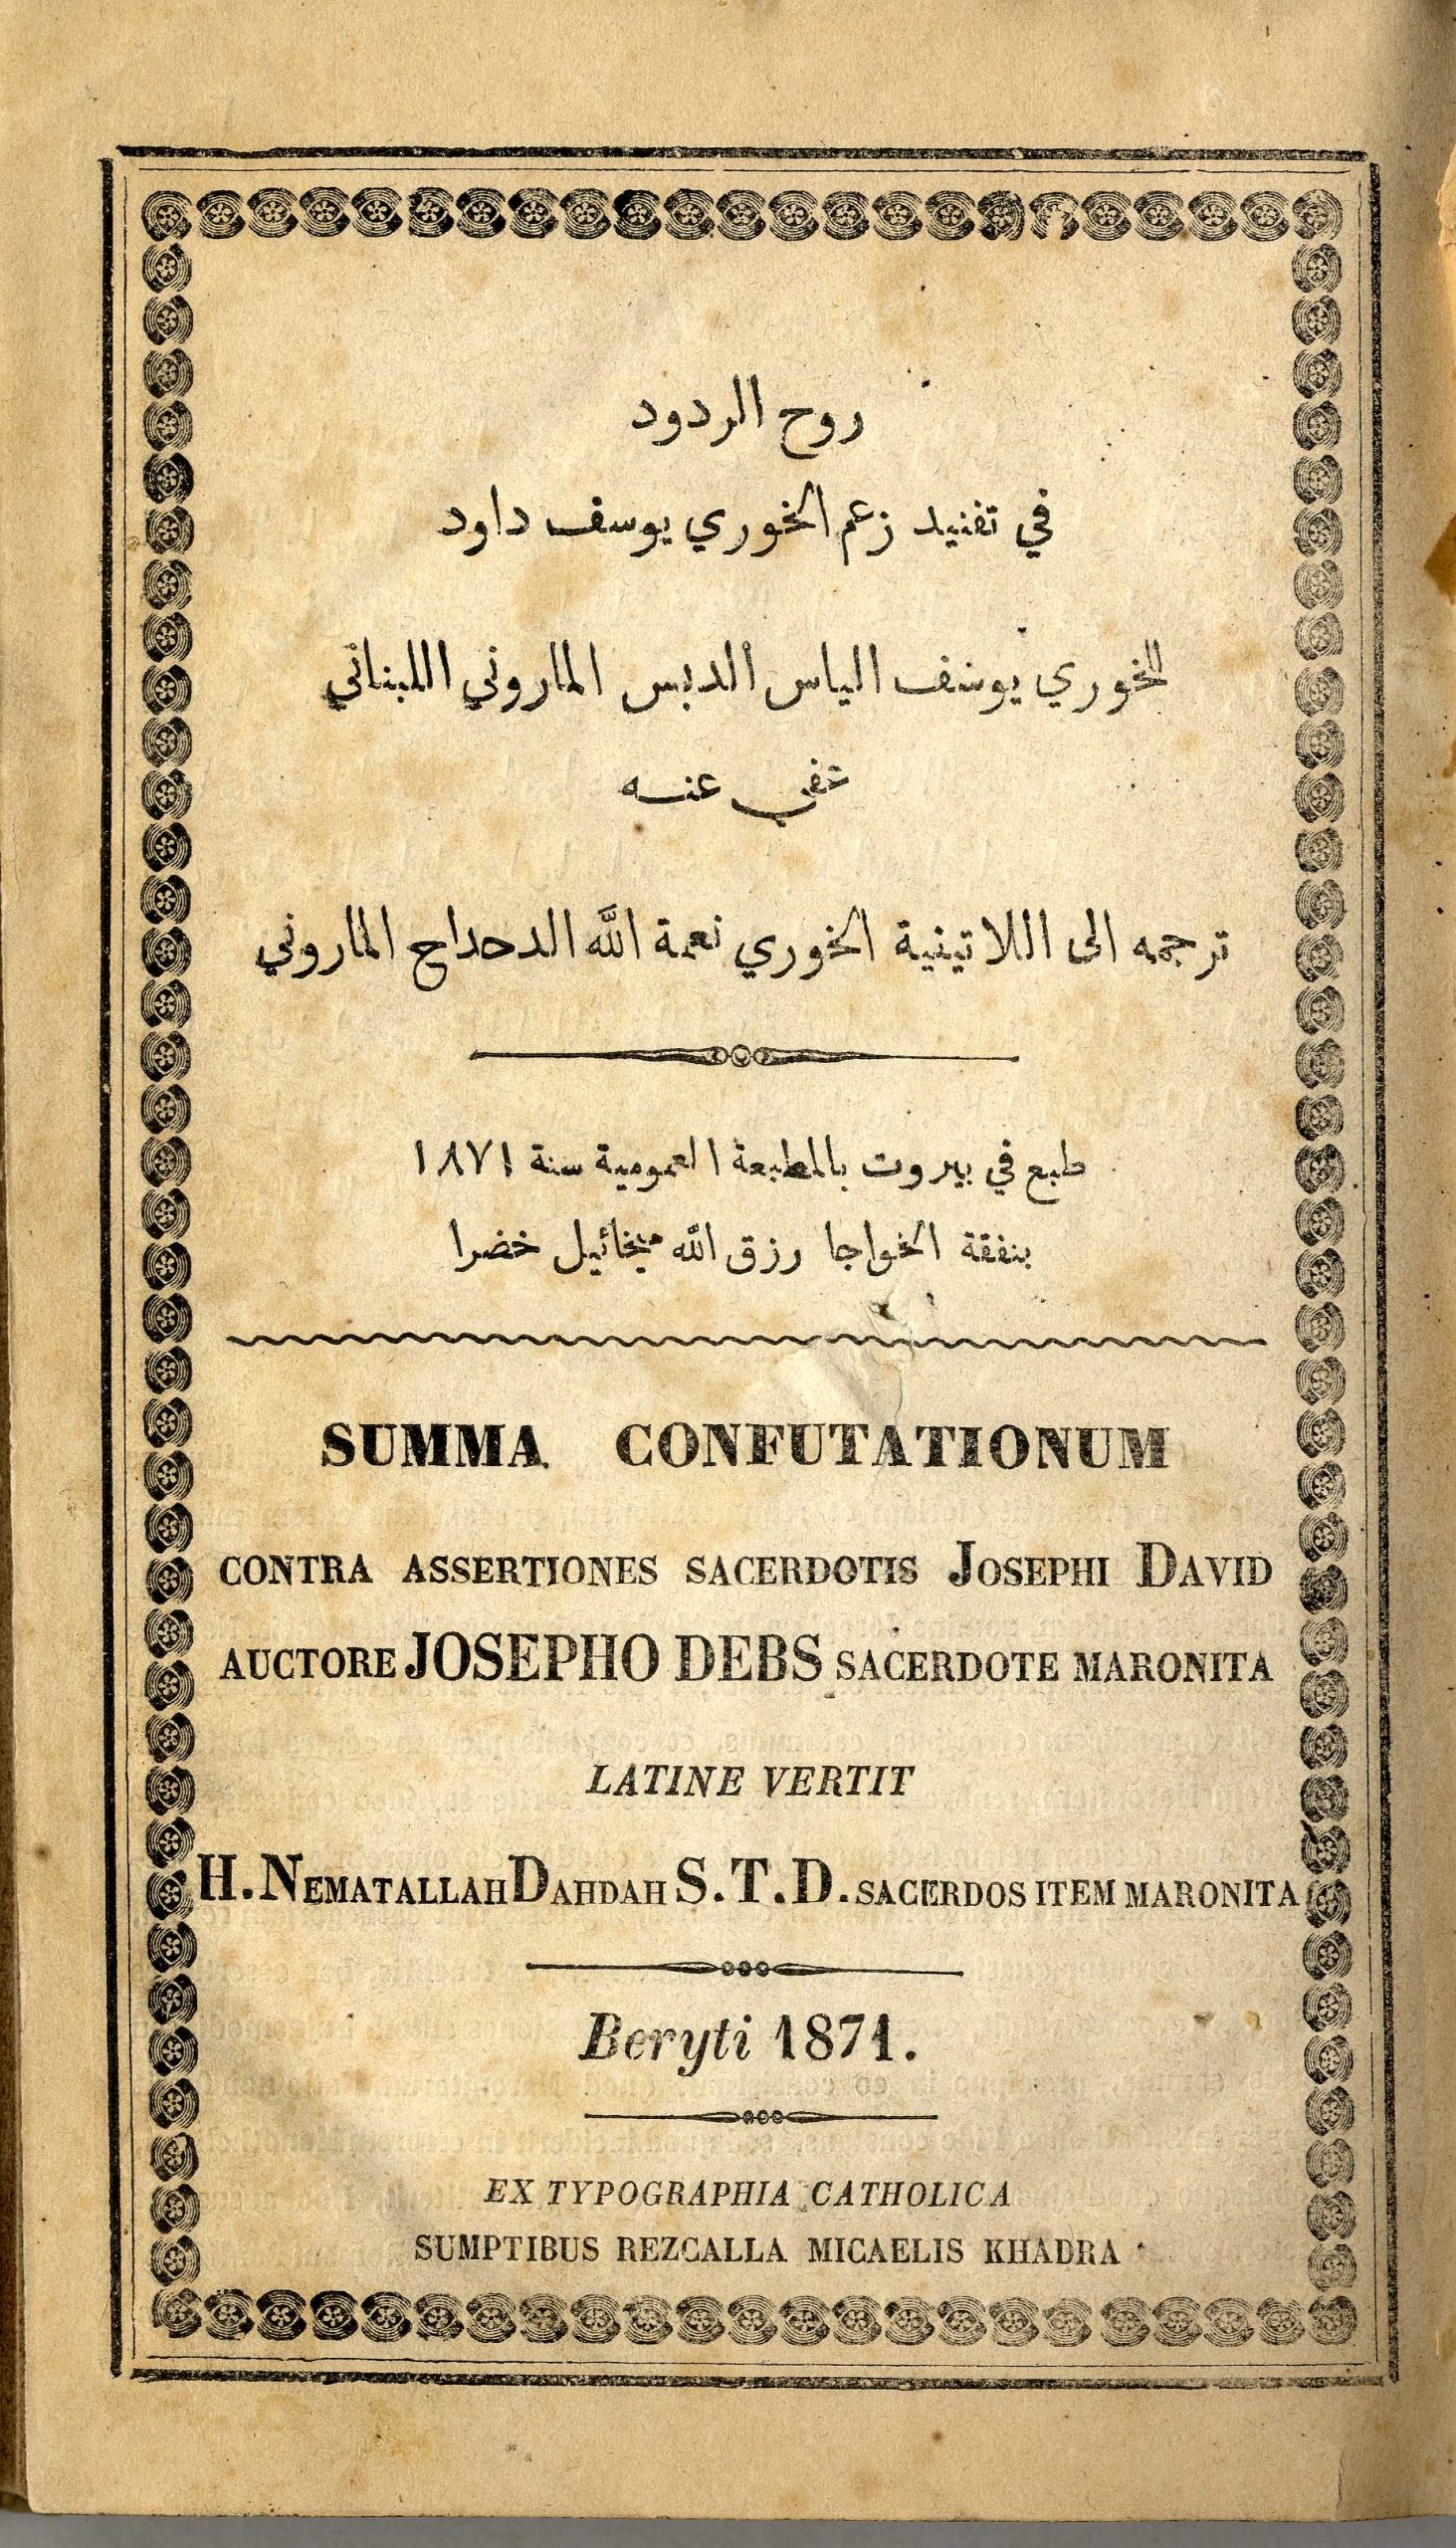 روح الردود
في تفنيد زعم الخوري يوسف داود
للخوري يوسف الياس الدبس الماروني اللبناني
عفي عنه
ترجمه الى اللاتينية الخوري نعمة الله الدحداح الماروني
طبع في بيروت بالمطبعة العمومية سنة ١٨٧١
بنفقة الخواجا رزق الله ميخائيل خضرا
SUMMA CONFUTATIONUM
CONTRA ASSERTIONES SACERDOTIS JOSEPHI DAVID
AUCTORE JOSEPHO DEBS SACERDOTE MARONITA
LATINE VERTIT
H. NEMATALLAH DAHDAH S.T.D. SACERDOS ITEM MARONITA
Beryti 1871.
EX TYPOGRAPHIA CATHOLICA
SUMPTIBUS REZCALLA MICAELIS KHADRA